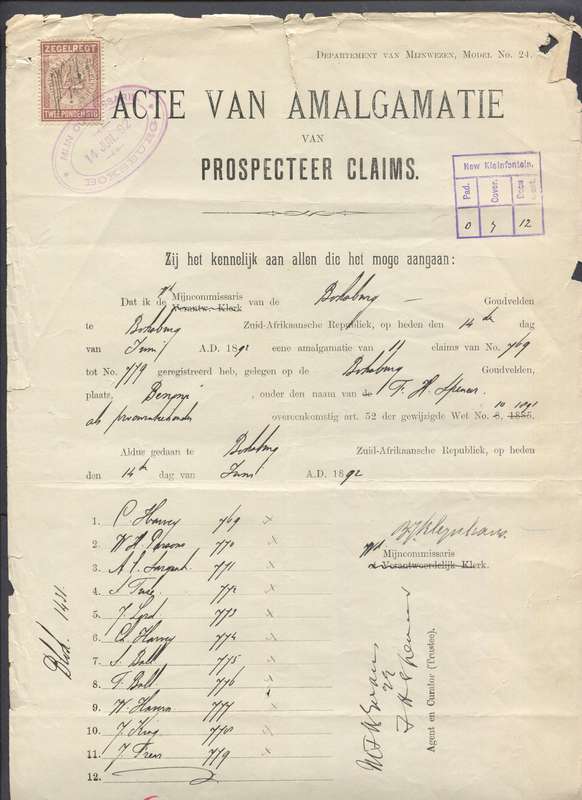 DEPARTEMENT VAN MIJNWEZEN, MODEL No. 24.
ZEGELREGT
TWEE PONDEN STG
14 JUN. 92
ACTE VAN AMALGAMATIE
VAN
PROSPECTEER CLAIMS.
New Kleinfontein.
Pad. Cover.
0 7 12
Zij het kennelijk aan allen die het moge aangaan:
Dat ik de Mijncommissaris van de Boksburg Goudvelden
Verantw. Klerk
te Boksburg Zuid-Afrikaansche Republiek, op heden den 14de dag
van Juni A.D. 1892 eene amalgamatie van 11 claims van No. 769
tot No. 779 geregistreerd heb, gelegen op de Boksburg Goudvelden,
plaats, Benoni, onder den naam van de F. H. Spencer
als overeenkomstig art. 52 der gewijzigde Wet No. 8, 1885. 10 1891
Aldus gedaan te Boksburg Zuid-Afrikaansche Republiek, op heden
den 14de dag van Juni A.D. 1892
1. C. Harvey 769 x
2. W. H. Parsons 770 x
3. A. P. Sargent 771 x
4. S 772 x
5. J. Lord 773 x
6. Ch Harvey 774 x
7. S. Ball 775 x
8. F. Ball 776 x
9. W. 777 x
10. J. King 778 x
11. J. 779 x
12.
Mijncommissaris
Verantwoordelijk Klerk.
1431
F H Spencer
Agent en Curator (Trustee).